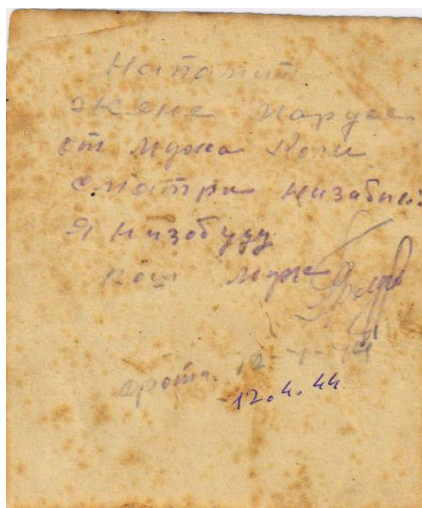 На память
Жене Марусе
от мужа Коли
смотри низабывай
Я низабуду
муж
фото 12-4-44
12.4.44.